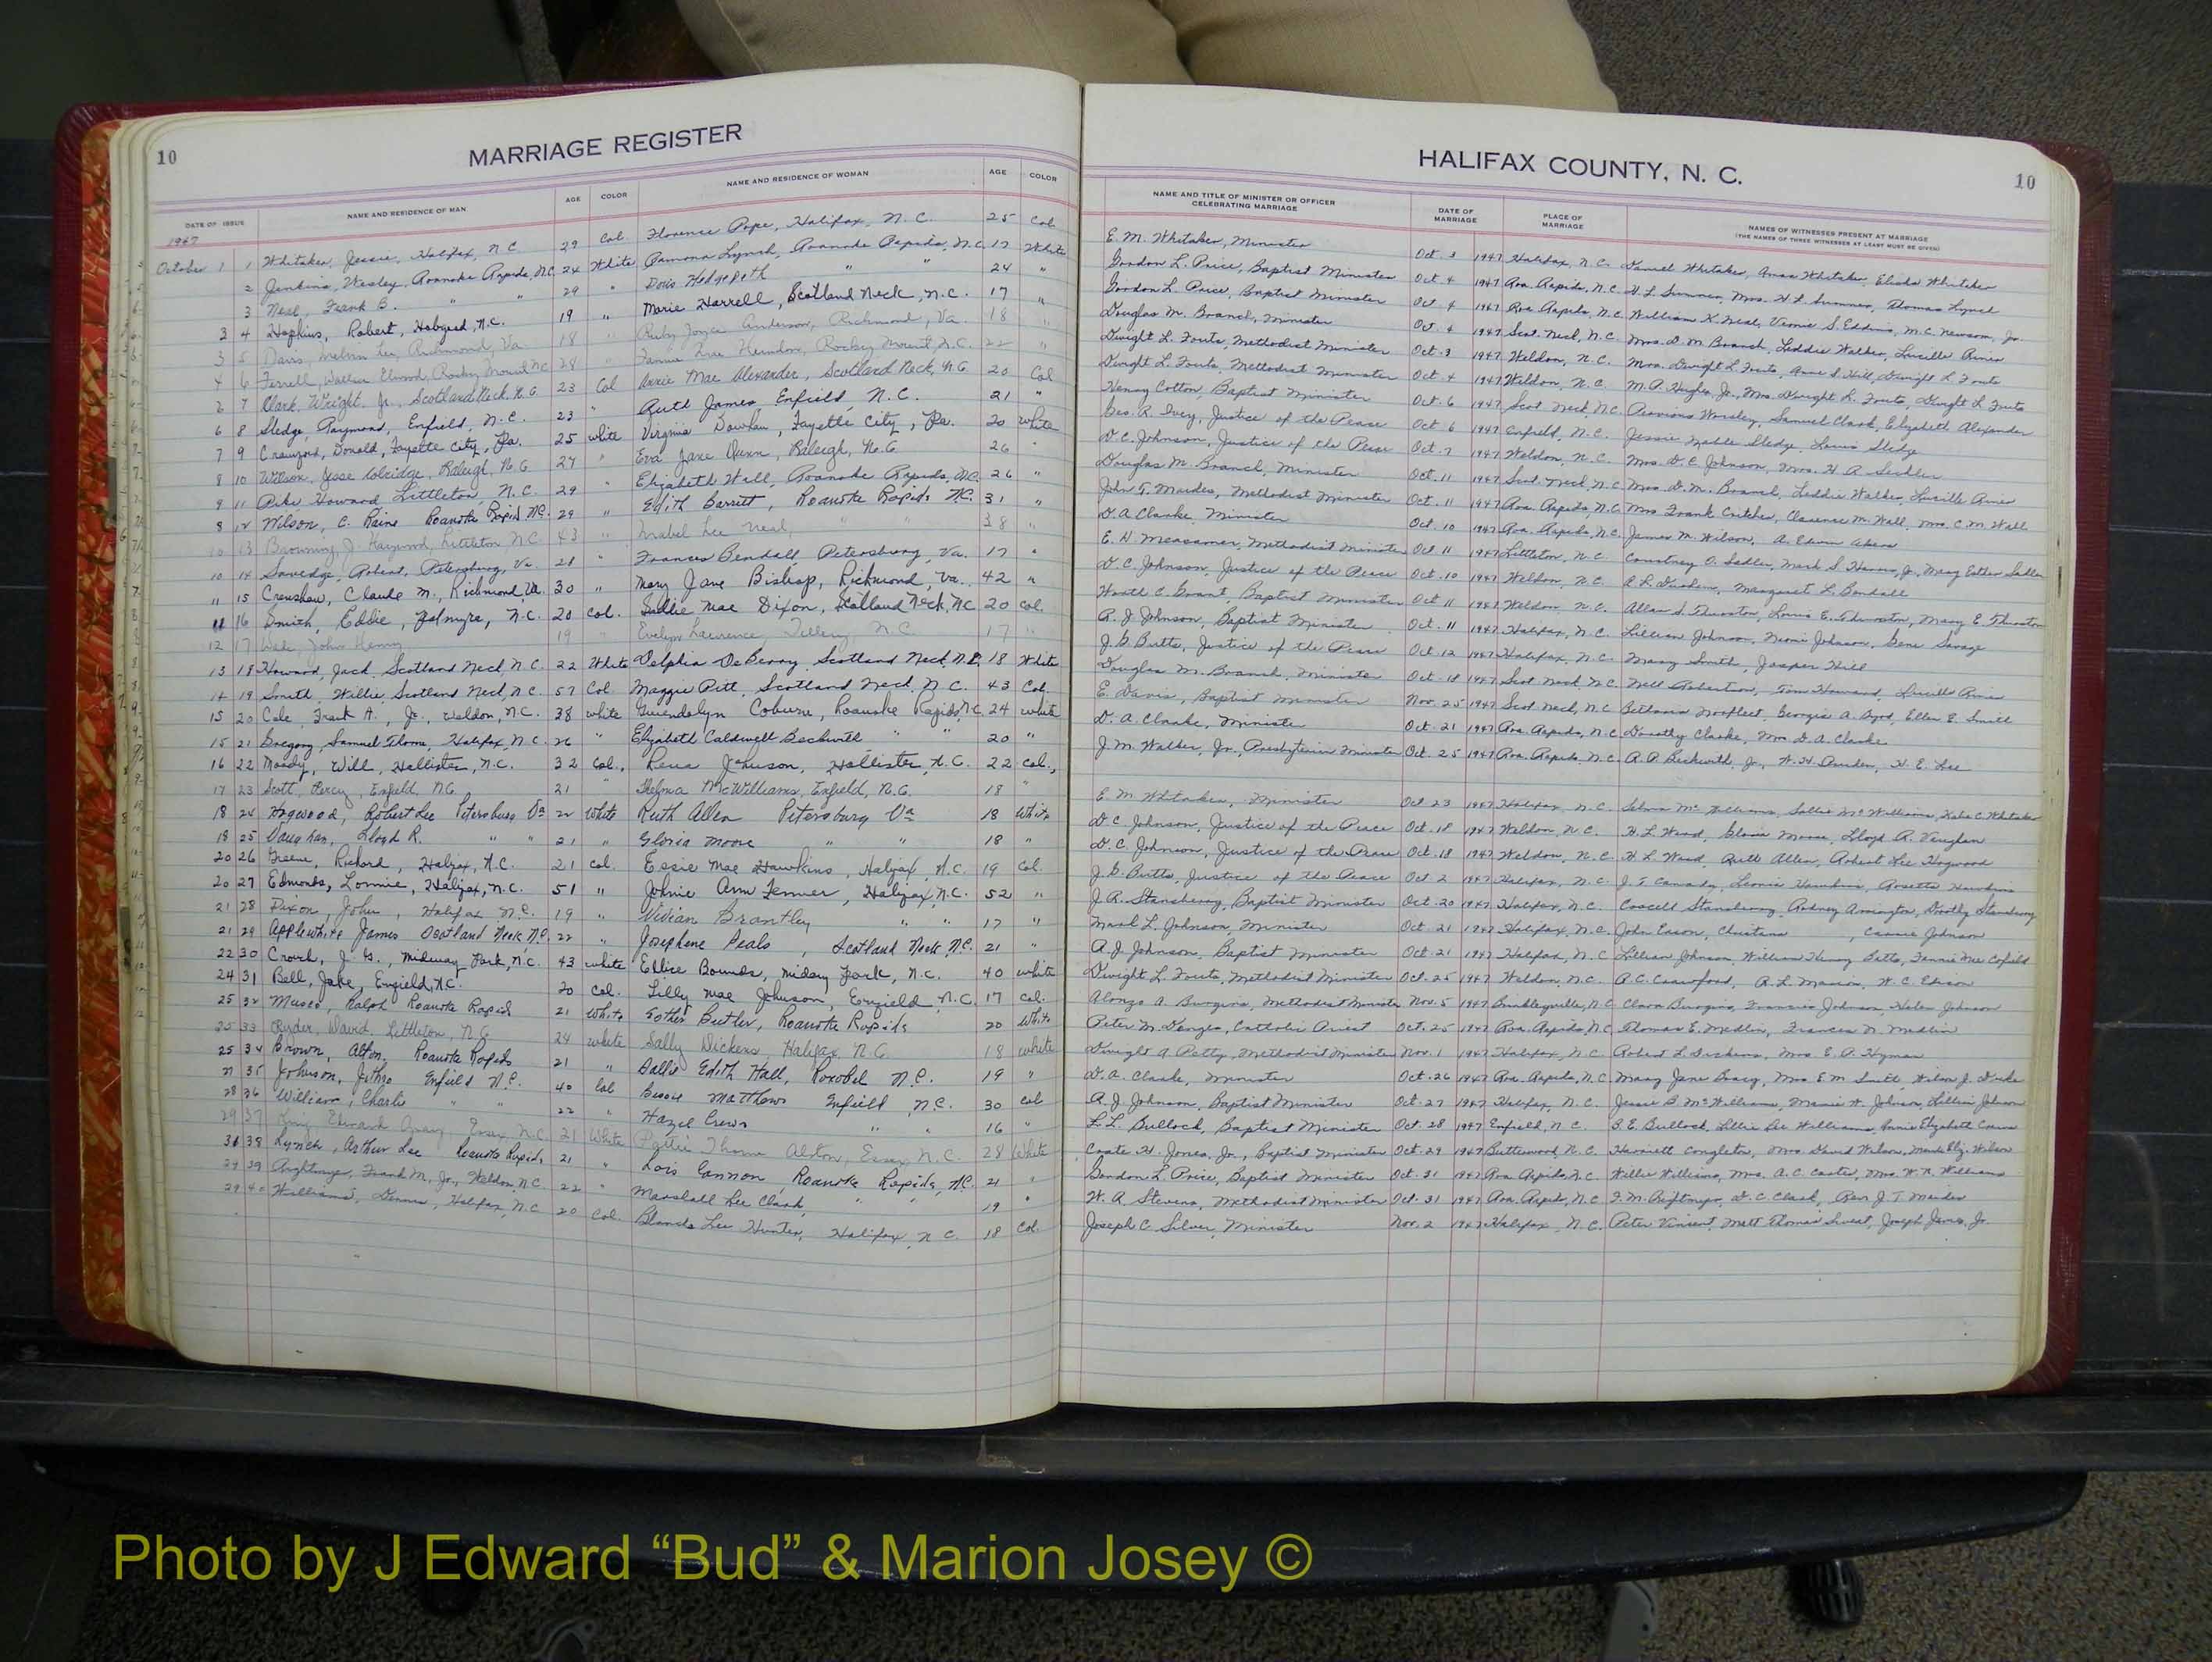 10
MARRIAGE REGISTER
DATE OF ISSUE NAME AND RESIDENCE OF MAN AGE COLOR NAME AND RESIDENCE OF WOMAN AGE COLOR
1947
October 1 1 Whitaker, Jessie, Halifax, N.C. 29 Col Florence Pope, Halifax, N.C. 25 Col
2 Jenkins, Wesley, Roanoke Rapids, N.C. 24 White Ramona Lynch, Roanoke Rapids, N.C. 17 White
3 Neal, Frank B. " " 29 " Doris Hedgepeth " " 24 "
3 4 Hopkins, Robert, Hobgood, N.C. 19 " Marie Harrell, Scotland Neck, N.C. 17 "
3 5 Davis, Melvin Lee, Richmond, Va. 18 " Ruby Joyce Anderson, Richmond, Va. 18 "
4 6 Ferrell, Walter Elwood, Rocky Mount N.C. 28 " Fannie Mae Herndon, Rocky Mount, N.C. 22 "
6 7 Clark, Wright, Jr., Scotland Neck, N.C. 23 Col Annie Mae Alexander, Scotland Neck, N.C. 20 Col
6 8 Sledge, Raymond, Enfield, N.C. 23 " Ruth James Enfield N.C. 21 "
7 9 Crawford, Donald, Fayette City, Pa. 25 white Virginia Fayette City, Pa. 20 white
8 10 Wilson, Jesse Raleigh, N.C. 27 " Eva Jane Raleigh, N.C. 26 "
9 11 Pike Howard Littleton, N.C. 29 " Elizabeth Wall, Roanoke Rapids, N.C. 26 "
8 12 Wilson, C. Raine Roanoke Rapids N.C. 29 " Edith Barrett, Roanoke Rapids N.C. 31 "
10 13 Browning, J. Haywood, Littleton N.C. 43 " Mabel Lee Neal, " " 38 "
10 14 Savedge, Robert, Petersburg, Va. 21 " Frances Bendall, Petersburg, Va. 17 "
11 15 Crenshaw, Claude M., Richmond, Va. 30 " Mary Jane Bishop, Richmond, Va. 42 "
11 16 Smith, Eddie, Palmyra, N.C. 20 Col. Sallie Mae Dixon, Scotland Neck, N.C. 20 Col.
12 17 John Henry 19 " Evelyn Lawrence, Tillery, N.C. 17 "
13 18 Howard, Jack, Scotland Neck, N.C. 22 White Delphia DeBerry, Scotland Neck, N.C. 18 White
14 19 Smith, Willie, Scotland Neck, N.C. 57 Col. Maggie Pitt, Scotland Neck, N.C. 43 Col.
15 20 Cole, Frank A., Jr., Weldon, N.C. 38 white Gwendolyn Coburn, Roanoke Rapids, N.C. 24 white
15 21 Gregory, Samuel Thorne, Halifax, N.C. 26 " Elizabeth Caldwell Beckwith " " 20 "
16 22 Moody, Will, Hollister, N.C. 32 Col., Rena Johnson, Hollister, N.C. 22 Col.,
17 23 Scott, Percy, Enfield, N.C. 21 " Thelma McWilliams, Enfield, N.C. 18 "
18 24 Hogwood, Robert Lee Petersburg Va 22 White Ruth Allen Petersburg Va 18 White
18 25 Vaughan, Lloyd R. " " 21 " Gloria Moore " " 18 "
20 26 Greene, Richard, Halifax, N.C. 21 Col. Essie Mae Hawkins, Halifax, N.C. 19 Col.
20 27 Edmonds, Lonnie, Halifax, N.C. 51 " Johnie Ann Fenner, Halifax, N.C. 52 "
21 28 Dixon, John, Halifax N.C. 19 " Vivian Brantley " " 17 "
21 29 Applewhite James Scotland Neck N.C. 22 " Josephine Deals, Scotland Neck N.C. 21 "
22 30 Crouch, J. G., Midway Park, N.C. 43 white Ellice Bounds, Midway Park, N.C. 40 white
24 31 Bell, Jake, Enfield, N.C. 20 Col. Lilly Mae Johnson, Enfield, N.C. 17 Col.
25 32 Museo, Ralph Roanoke Rapids 21 White Esther Butler, Roanoke Rapids 20 White
25 33 Ryder, David, Littleton, N.C. 24 white Sally Dickens, Halifax, N.C. 18 white
25 34 Brown, Alton, Roanoke Rapids 21 " Sallie Edith Hall, Roxobel N.C. 19 "
27 35 Johnson, Jethro Enfield N.C. 40 Col Bessie Matthews Enfield, N.C. 30 Col
28 36 Williams, Charlie " " 22 " Hazel Crews " " 16 "
29 37 King, Edward Essex, N.C. 21 White Pattie Thorne Alston, Essex, N.C. 28 White
31 38 Lynch, Arthur Lee Roanoke Rapids, 21 " Lois Cannon, Roanoke Rapids, N.C. 21 "
29 39 Frank M., Jr., Weldon, N.C. 22 " Marshall Lee Clark, 19 "
29 40 Williams, Halifax, N.C. 20 Col. Blanch Lee Hunter, Halifax, N.C. 18 Col.
HALIFAX COUNTY, N. C.
10
NAME AND TITLE OF MINISTER OR OFFICER CELEBRATING MARRIAGE DATE OF MARRIAGE PLACE OF MARRIAGE NAMES OF WITNESSES PRESENT AT MARRIAGE
(THE NAMES OF THREE WITNESSES AT LEAST MUST BE GIVEN)
E. M. Whitaker, Minister Oct. 3 1947 Halifax, N.C. Daniel Whitaker, Annie Whitaker, Elisha Whitaker
Gordon L. Price, Baptist Minister Oct 4 1947 Roa. Rapids, N.C. H. L. Sumner, Mrs. H. L. Sumner, Thomas Lynch
Gordon L. Price, Baptist Minister Oct 4 1947 Roa. Rapids, N.C. William K. Neal, Vernie S. Eddins, M.C. Newsom, Jr.
Douglas M. Branch, Minister Oct. 4 1947 Scot. Neck, N.C. Mrs. D. M. Branch, Leddie Walker, Lucille
Dwight L. Fouts, Methodist Minister Oct. 3 1947 Weldon, N.C. Mrs. Dwight L. Fouts, Anne S. Hill, Dwight L. Fouts
Dwight L. Fouts, Methodist Minister Oct. 4 1947 Weldon, N.C. M. A. Hughes, Jr., Mrs. Dwight L. Fouts, Dwight L. Fouts
Henry Cotton, Baptist Minister Oct. 6 1947 Scot. Neck, N.C. Worsley, Samuel Clark, Elizabeth Alexander
Geo. R. Ivey, Justice of the Peace Oct 6 1947 Enfield, N.C. Jessie Mable Sledge, Louis Sledge
D.C. Johnson, Justice of the Peace Oct. 7 1947 Weldon, N.C. Mrs. D. C. Johnson, Mrs. H. A. Sadler
Douglas M. Branch, Minister Oct. 11 1947 Scot. Neck, N.C. Mrs. D. M. Branch, Leddie Walker, Lucille
John T. Maides, Methodist Minister Oct. 11 1947 Roa. Rapids, N.C. Mrs. Frank Critcher, Clarence M. Wall, Mrs. C. M. Wall
D. A. Clarke, Minister Oct. 10 1947 Roa. Rapids, N.C. James M. Wilson, A. Edwin Akers
E. H. Measamer, Methodist Minister Oct 11 1947 Littleton, N.C. Courtney O. Sadler, Mark S. Jr., Mary Esther Sadler
D. C. Johnson, Justice of the Peace Oct. 10 1947 Weldon, N.C. Margaret L. Bendall
Worth C. Grant, Baptist Minister Oct 11 1947 Weldon, N.C. Allan S. Thurston, Louis E. Thurston, Mary E. Thurston
R. J. Johnson, Baptist Minister Oct. 11 1947 Halifax, N.C. Lillian Johnson, Naomi Johnson, Gene Savage
J. G. Butts, Justice of the Peace Oct 12 1947 Halifax, N.C. Mary Smith, Jasper Hill
Douglas M. Branch, Minister Oct. 18 1947 Scot. Neck, N.C. Nell Robertson, Tom Howard, Lucille
E. Davis, Baptist Minister Nov. 25 1947 Scot. Neck, N.C. Norfleet, Georgia A. Byrd, Ellen E. Smith
D. A. Clarke, Minister Oct. 21 1947 Roa. Rapids, N.C. Dorothy Clarke, Mrs. D. A. Clarke
J. M. Walker, Jr., Presbyterian Minister Oct. 25 1947 Roa. Rapids, N.C. R. P. Beckwith, Jr., H. E. Lee
E. M. Whitaker, Minister Oct 23 1947 Halifax, N.C. McWilliams, Sallie McWilliams, C. Whitaker
D. C. Johnson, Justice of the Peace Oct. 18 1947 Weldon, N.C. H. L. Wood, Gloria Moore, Lloyd R. Vaughan
D. C. Johnson, Justice of the Peace Oct. 18 1947 Weldon, N.C. H. L. Wood, Ruth Allen, Robert Lee Hogwood
J. G. Butts, Justice of the Peace Oct 2 1947 Halifax, N.C. J. T. Canady, Leonia Hawkins, Rosetta Hawkins
J. R. Stansberry, Baptist Minister Oct. 20 1947 Halifax, N.C. Stansberry, Rodney Arrington, Dorothy Stansberry
L. Johnson, Minister Oct. 21 1947 Halifax, N.C. John Eason, Christana , Johnson
R. J. Johnson, Baptist Minister Oct. 21 1947 Halifax, N.C. Lillian Johnson, William Henry Batts, Fannie Mae Cofield
Dwight L. Fouts, Methodist Minister Oct. 25 1947 Weldon, N.C. R. C. Crawford, R. L. Marion, W. C. Ellison
Alonzo A. Burgins, Methodist Minister Nov. 5 1947 Brinkleyville, N.C. Clara Burgins, Francis Johnson, Helen Johnson
Peter M. Denges, Catholic Priest Oct. 25 1947 Roa. Rapids, N.C. Thomas E. Medlin, Frances N. Medlin
Dwight A. Petty, Methodist Minister Nov. 1 1947 Halifax, N.C. Robert L. Dickens, Mrs. E. P. Hyman
D. A. Clarke, Minister Oct. 26 1947 Roa. Rapids, N.C. Mary Jane Bracy, Mrs. E. M. Smith, Wilson J. Drake
R. J. Johnson, Baptist Minister Oct. 27 1947 Halifax, N.C. Jessie B. McWilliams, Mamie H. Johnson, Lillian Johnson
L. L. Bullock, Baptist Minister Oct. 28 1947 Enfield, N.C. B. E. Bullock, Lillie Lee Williams, Annie Elizabeth Crews
Coate H. Jones, Jr., Baptist Minister Oct. 29 1947 Butterwood N.C. Harriett Congleton, Mrs. David Wilson, Wilson
Gordon L. Price, Baptist Minister Oct. 31 1947 Roa. Rapids, N.C. Willie Williams, Mrs. A. C. Carter, Mrs. W. R. Williams
W. A. Stevens, Methodist Minister Oct. 31 1947 Roa. Rapids, N.C. F. M. D. C. Clark, Rev. J. T. Maides
Joseph C. Silver, Minister Nov. 2 1947 Halifax, N.C. Peter Vincent, Matt Thomas Sweat, Joseph Jones, Jr.
Photo by J Edward “Bud” & Marion Josey ©